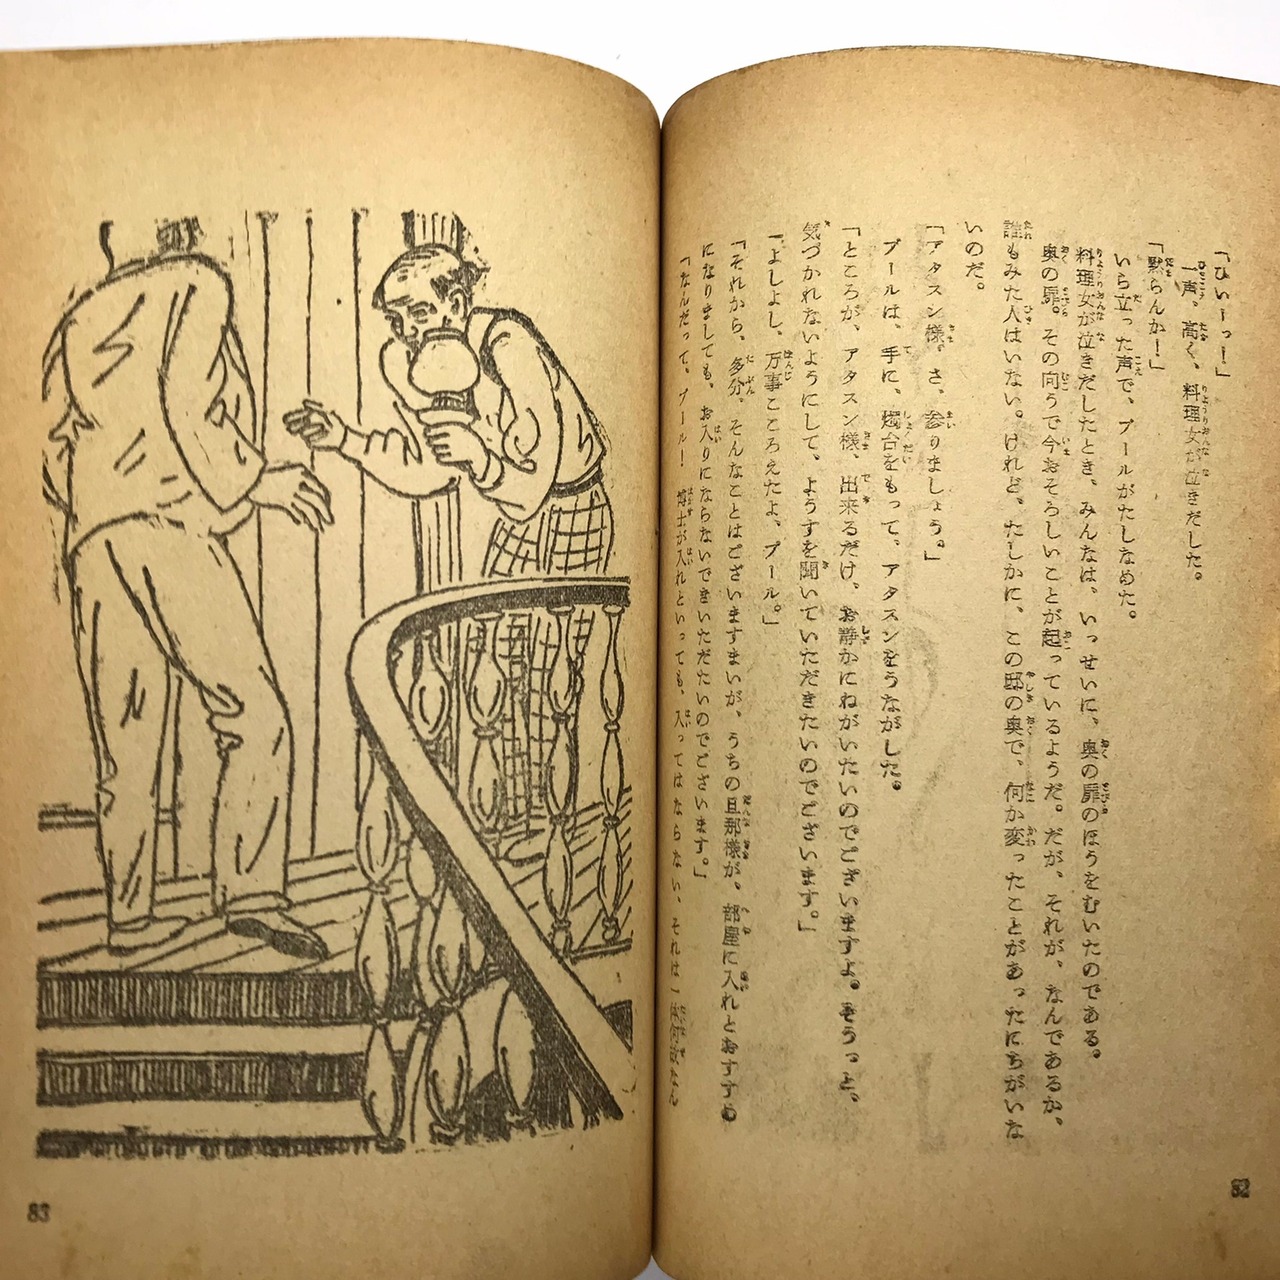 「ひいーっ！」
一声、高く、料理女が泣きだした。
「黙らんか！」
いら立った声で、プールがたしなめた。
料理女が泣きだしたとき、みんなは、いっせいに、奥の扉のほうをむいたのである。
奥の扉。その向うで今おそろしいことが起っているようだ。だが、それが、なんであるか、
誰もみた人はいない。けれど、たしかに、この邸の奥で、何か変ったことがあったにちがいな
いのだ。
「アタスン様。さ、参りましょう。」
プールは、手に、燭台をもって、アタスンをうながした。
「ところが、アタスン様、出来るだけ、お静かにねがいたいのでございますよ。そうっと、
気づかれないようにして、ようすを聞いていただきたいのでございます。」
「よしよし、万事こころえたよ、プール。」
「それから、多分、そんなことはございますまいが、うちの旦那様が、部屋に入れとおすすめ
になりましても、お入りにならないでいただきたいのでございます。」
「なんだって、プール！　博士が入れといっても、入ってはならない、それは
82
83